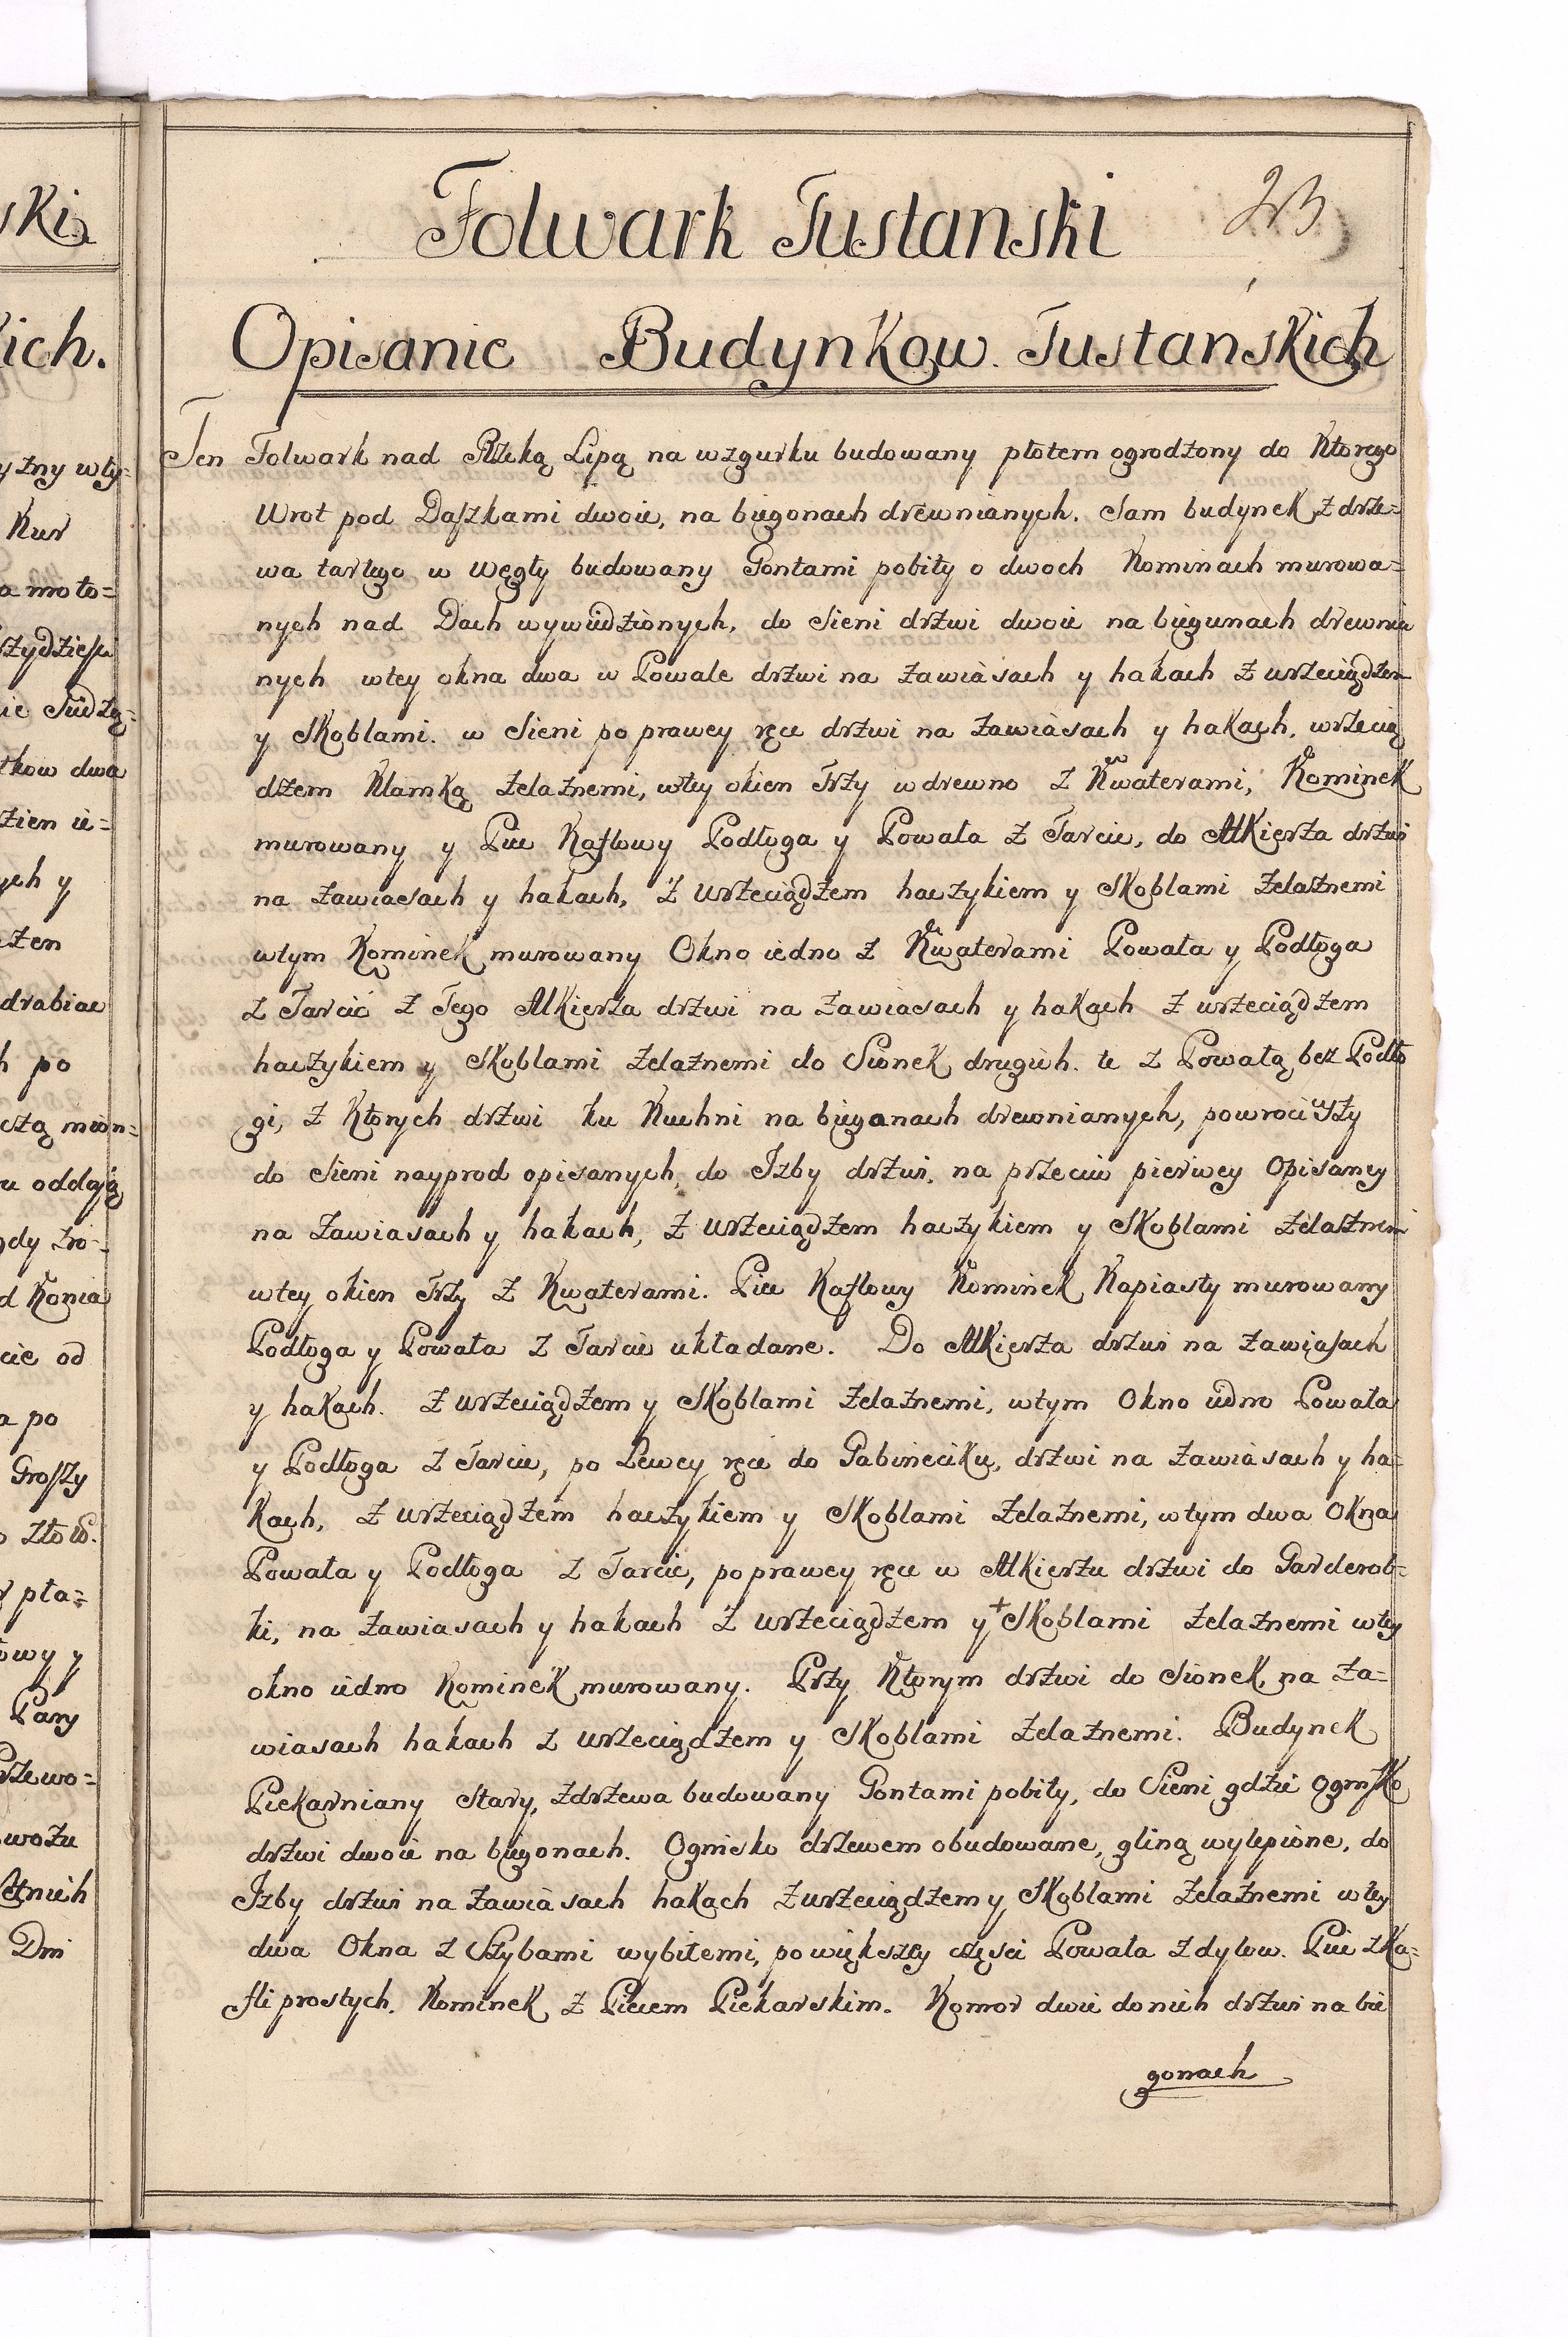 Folwark Tustanski
23
Opisanie Budynkow Tustanskich
Ten Folwark nad Rzeką Lipą na wzgurku budowany płotem ogrodzony do Ktorego
Wrot pod Daszkami dwoie, na biegonach drewnianych. Sam budynek z drze=
wa tartego w węgły budowany Gontami pobity o dwoch Kominach murowa=
nych nad Dach wywiedzionych, do Sieni drzwi dwoie na biegunach drewnia
nych wtey okna dwa w Powale drzwi na zawiasach y hakach z wrzeciądzem
y Skoblami. w Sieni po prawey ręce drzwi na zawiasach y hakach, wrzecią
dzem Klamką żelaznemi, wtey okien Trzy w drewno z Kwaterami, Kominek
murowany y Piec Kaflowy Podłoga y Powała z Tarcic, do Alkierza drzwi
na zawiasach y hakach, z wrzeciądzem haczykiem y Skoblami żelaznemi
wtym Kominek murowany Okno iedno z Kwaterami Powała y Podłoga
z Tarcic z Tego Alkierza drzwi na zawiasach y hakach z wrzeciądzem
haczykiem y Skoblami żelaznemi do Sionek drugich. te z Powałą bez Podło
gi, z Ktorych drzwi ku Kuchni na bieganach drewnianych, powrociwszy
do Sieni nayprod opisanych, do Izby drzwi, na przeciw pierwey Opisaney
na zawiasach y hakach, z wrzeciądzem haczykiem y Skoblami żelaznemi
wtey okien Trzy z Kwaterami. Piec Kaflowy Kominek Kapiasty murowany
Podłoga y Powała z Tarcic układane. Do Alkierza drzwi na zawiasach
y hakach. z wrzeciądzem y Skoblami żelaznemi, wtym Okno iedno Powała
y Podłoga z Tarcic, po Lewey ręce do Gabineciku, drzwi na zawiasach y ha=
kach, z wrzeciądzem haczykiem y Skoblami żelaznemi, wtym dwa Okna
Powała y Podłoga z Tarcic, po prawey ręce w Alkierzu drzwi do Garderob=
ki, na zawiasach y hakach z wrzeciądzem y + Skoblami żelaznemi wtey
okno iedno Kominek murowany. Przy Ktorym drzwi do Sionek na za=
wiasach hakach z wrzeciądzem y Skoblami żelaznemi. Budynek
Piekarniany Stary, zdrzewa budowany Gontami pobity, do Sieni gdzie Ognisko
drzwi dwoie na biegonach. Ognisko drzewem obudowane, gliną wylepione, do
Izby drzwi na zawiasach hakach z wrzeciądzem y Skoblami żelaznemi wtey
dwa Okna z Szybami wybitemi, po większey części Powała z dylow. Piec zKa=
fli prostych. Kominek z Piecem Piekarskim. Komor dwie do nich drzwi na bie
gonach